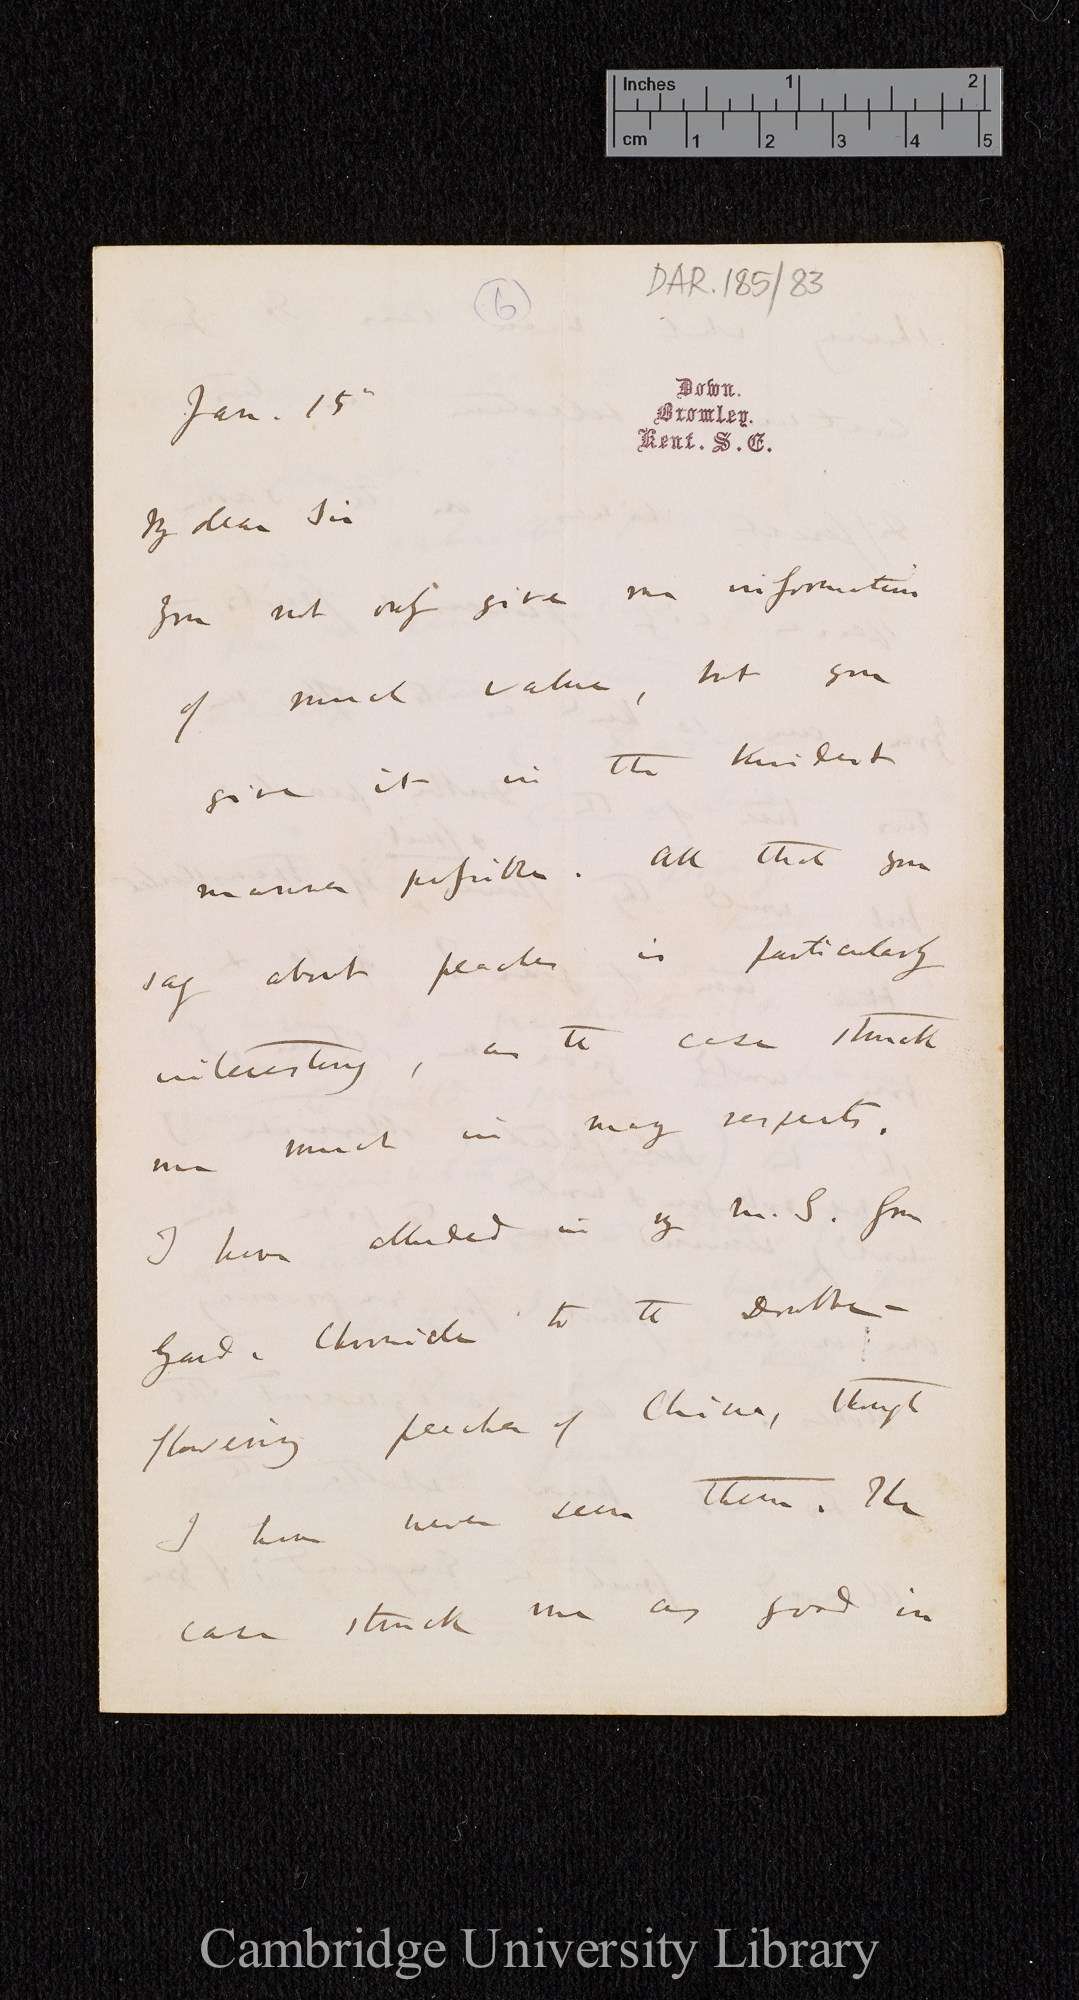 Inches 1 2
cm 1 2 3 4 5
DAR. 185/83
6
Down.
Bromley.
Kent. S.E.
Jan. 15"
My dear Sir
You not only give me information
of much value, but you
give it in the kindest
manner possible. All that you
say about peaches is particularly
interesting, as the case struck
me much in many respects.
I have alluded in my M.S. from
Gard. Chronicle to the Double-
flowering peaches of China, though
I have never seen them. The
case struck me as good in
Cambridge University Library